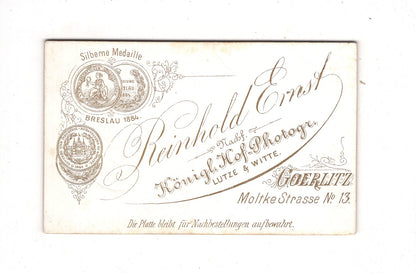 Silberne Medaille
BRESLAU 1884.
Reinhold Ernst
Nachf.
Königl. Hof-Photogr.
LUTZE & WITTE.
GOERLITZ
Moltke Strasse No 13.
Die Platte bleibt für Nachbestellungen aufbewahrt.